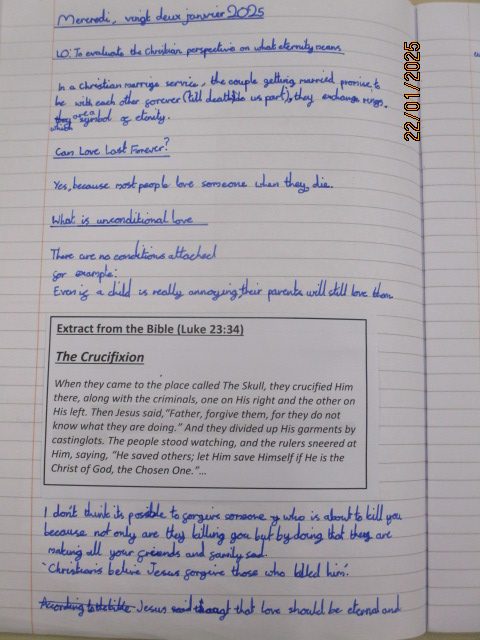 Mercredi, vingt deux janvier 2025
LO: To evaluate the Christian perspective on what eternity means
In a Christian marrige service, the couple getting married promise to
be with each other forever (till death do us part), they exchange rings.
which are a symbol of eternity.
Can Love Last Forever?
Yes, because most people love someone when they die.
What is unconditional love
There are no conditions attached
for example:
Even if a child is really annoying, their parents will still love them.
Extract from the Bible (Luke 23:34)
The Crucifixion
When they came to the place called The Skull, they crucified Him
there, along with the criminals, one on His right and the other on
His left. Then Jesus said, "Father, forgive them, for they do not
know what they are doing." And they divided up His garments by
castinglots. The people stood watching, and the rulers sneered at
Him, saying, "He saved others; let Him save Himself if He is the
Christ of God, the Chosen One."...
I don't think its possible to forgive someone who is about to kill you
because not only are they killing you but by doing that they are
making all your friends and family sad.
'Christians belive Jesus forgive those who killed him.'
According to the bible Jesus said that love should be eternal and
22/01/2025